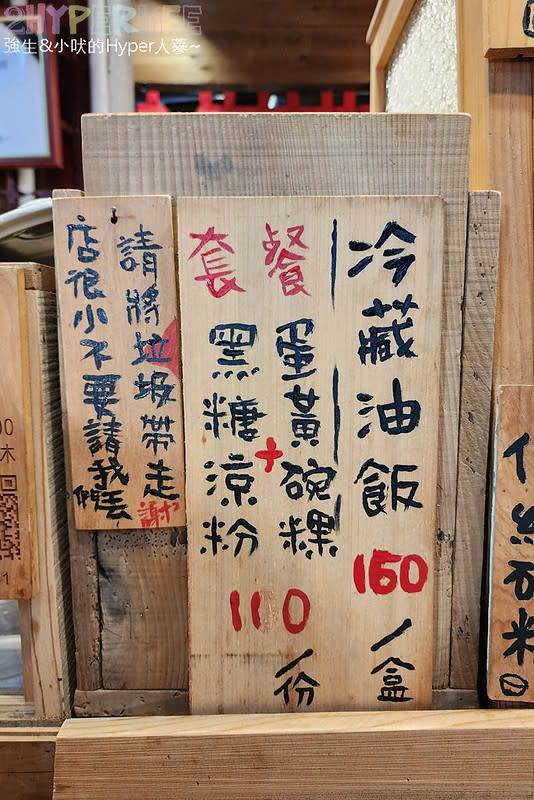 2HYPERLIFE
強生&小吠的Hyper人蔘~
冷藏油飯160/盒
套餐
蛋黃碗粿
+
黑糖涼粉
110/份
請將垃圾帶走
店很小不要請我們丟
謝
木